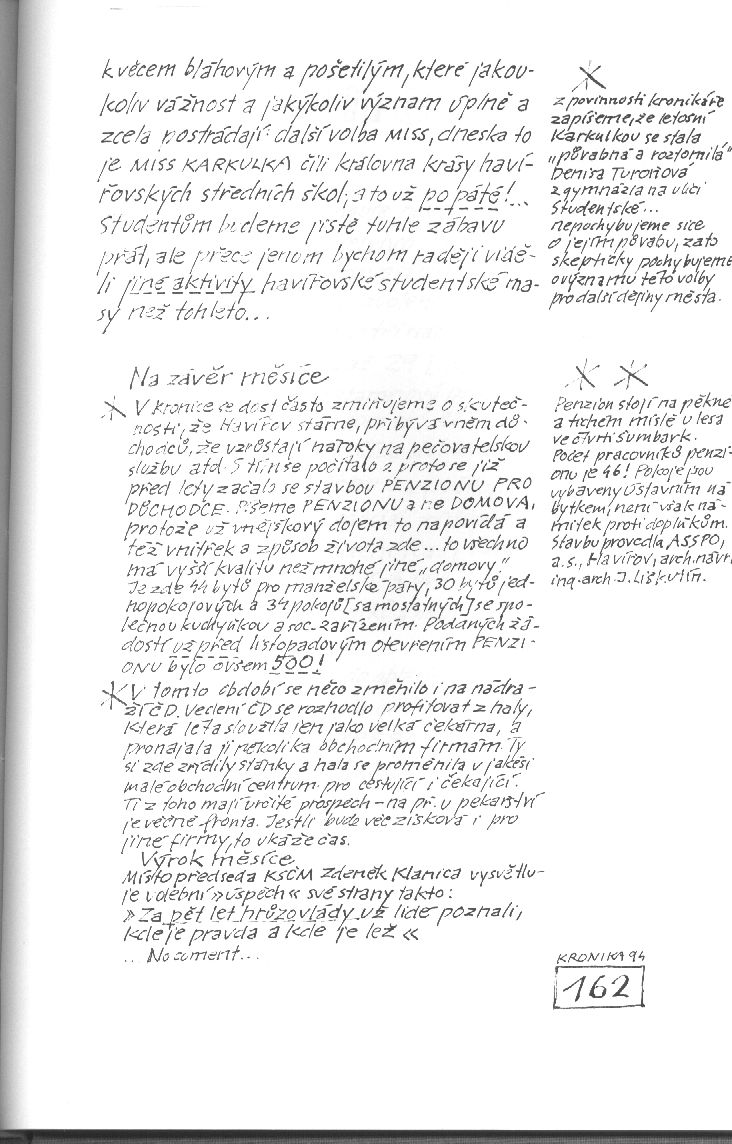 k věcem bláhovým a pošetilým, které jakou-
koliv vážnost a jakýkoliv význam úplně a
zcela postrádají: další volba MISS, dneska to
je MISS KARKULKA čili královna krásy haví-
řovských středních škol, a to už po páté!...
Studentům budeme jistě tuhle zábavu
přát, ale přece jenom bychom raději vidě-
li jiné aktivity havířovské studentské ma-
sy než tohleto...
Na závěr měsíce
V kronice se dost často zmiňujeme o skuteč-
nosti, že Havířov stárne, přibývá v něm dů-
chodců, že vzrůstají nároky na pečovatelskou
službu atd. S tím se počítalo a proto se již
před lety začalo se stavbou PENZIONU PRO
DŮCHODCE. Píšeme PENZIONU a ne DOMOVA,
protože už vnějškový dojem to napovídá a
též vnitřek a způsob života zde... to všechno
má vyšší kvalitu než mnohé jiné „domovy.“
Je zde 44 bytů pro manželské páry, 30 bytů jed-
nopokojových a 34 pokojů [samostatných] se spo-
lečnou kuchyňkou a soc. zařízením. Podaných žá-
dostí už před listopadovým otevřením PENZI-
ONU bylo ovšem 500!
V tomto období se něco změnilo i na nádra-
ží ČD. Vedení ČD se rozhodlo profitovat z haly,
která léta sloužila jen jako velká čekárna, a
pronajala ji několika obchodním firmám. Ty
si zde zřídily stánky a hala se proměnila v jakési
malé obchodní centrum pro cestující i čekající.
Ti z toho mají určitě prospěch - na př. u pekařství
je věčně fronta. Jestli bude věc zisková i pro
jiné firmy, to ukáže čas.
Výrok měsíce
Místopředseda KSČM Zdeněk Klanica vysvětlu-
je volební »úspěch« své strany takto:
»Za pět let hrůzovlády už lidé poznali,
kde je pravda a kde je lež«
.. No coment...
z povinnosti kronikáře
zapíšeme, že letošní
Karkulkou se stala
„půvabná a roztomilá“
Denisa Turoňová
z gymnázia na ulici
Studentské...
nepochybujeme sice
o jejím půvabu, zato
skepticky pochybujeme
o významu této volby
pro další dějiny města.
Penzion stojí na pěkné
a tichém místě u lesa
ve čtvrti Šumbark.
Počet pracovníků penzi-
onu je 46! Pokoje jsou
vybaveny ústavním ná-
bytkem, není však ná-
mitek proti doplňkům.
Stavbu provedla ASSPO,
a.s., Havířov, arch. návrh
ing. arch. J. Liškutín.
KRONIKA 94
162